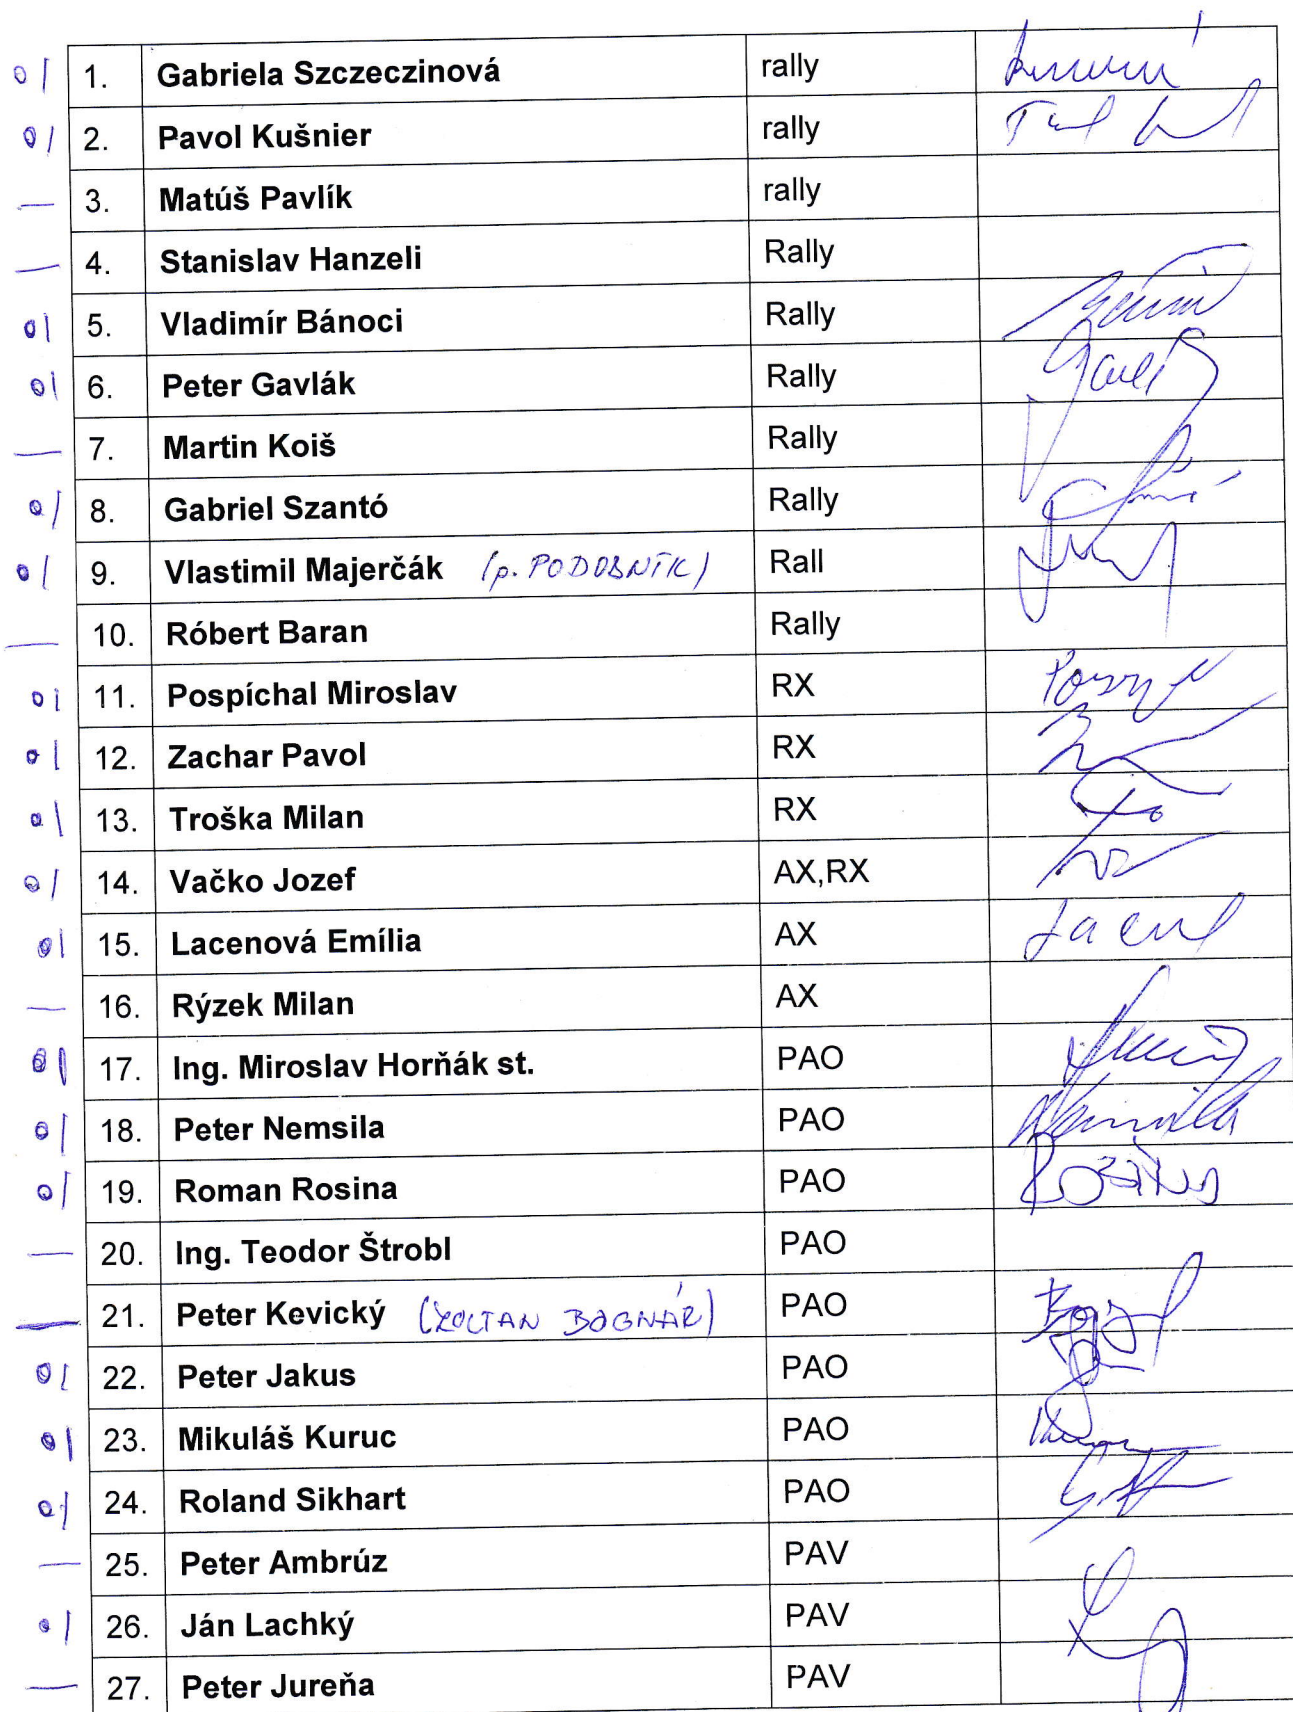 1. Gabriela Szczeczinová rally
2. Pavol Kušnier rally
3. Matúš Pavlík rally
4. Stanislav Hanzeli Rally
5. Vladimír Bánoci Rally
6. Peter Gavlák Rally
7. Martin Koiš Rally
8. Gabriel Szantó Rally
9. Vlastimil Majerčák (p. PODOBNÍK) Rall
10. Róbert Baran Rally
11. Pospíchal Miroslav RX
12. Zachar Pavol RX
13. Troška Milan RX
14. Vačko Jozef AX,RX
15. Lacenová Emília AX
16. Rýzek Milan AX
17. Ing. Miroslav Horňák st. PAO
18. Peter Nemsila PAO
19. Roman Rosina PAO
20. Ing. Teodor Štrobl PAO
21. Peter Kevický (ZOLTAN BOGNÁR) PAO
22. Peter Jakus PAO
23. Mikuláš Kuruc PAO
24. Roland Sikhart PAO
25. Peter Ambrúz PAV
26. Ján Lachký PAV
27. Peter Jureňa PAV